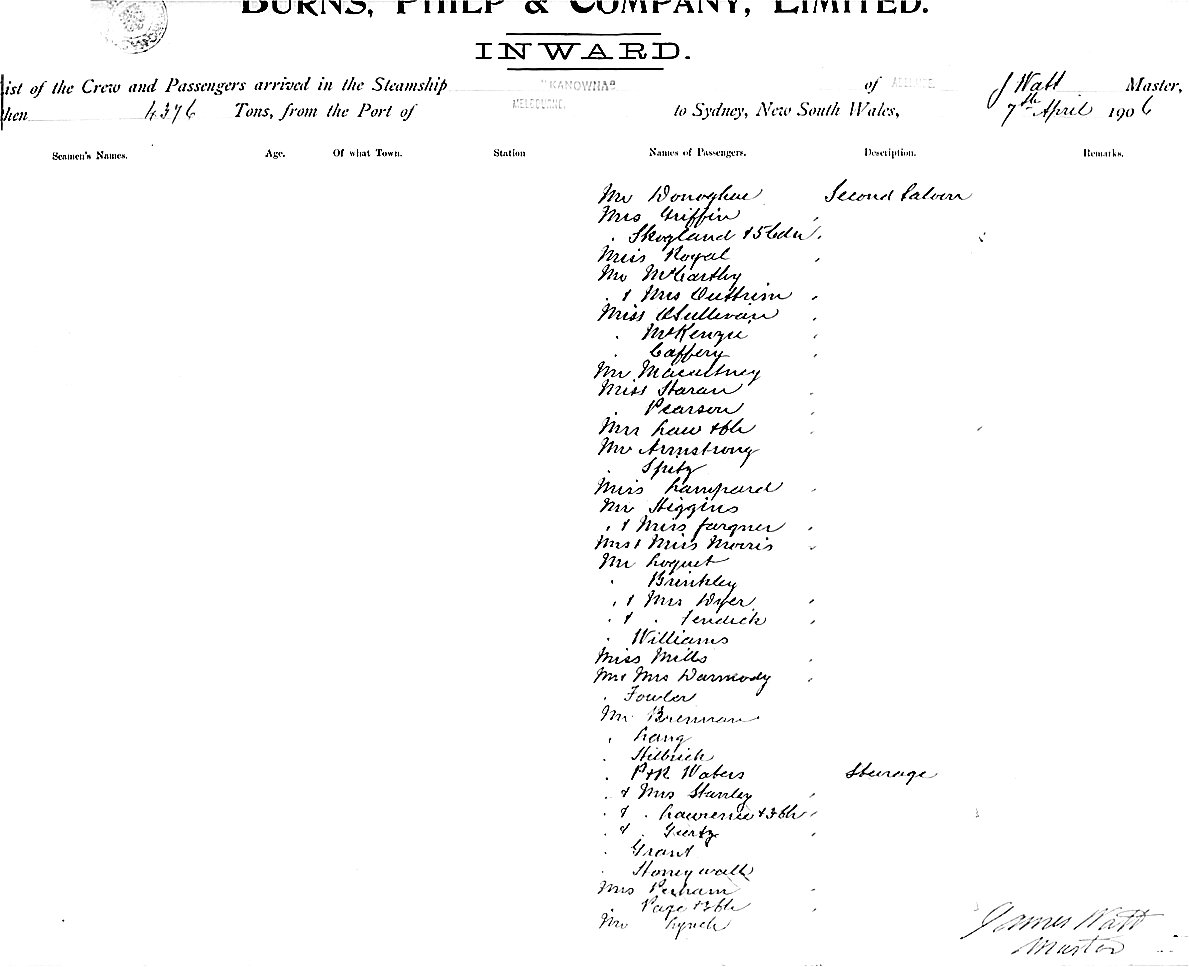 BURNS, PHILP & COMPANY, LIMITED.
INWARD.
ist of the Crew and Passengers arrived in the Steamship "KANOWNA" of ADELAIDE J Watt Master,
hen 4376 Tons, from the Port of MELBOURNE. to Sydney, New South Wales, 7th April 1906
Seamen's Names. Age. Of what Town. Station Names of Passengers. Description. Remarks.
Mr Donoghue Second Saloon
Mrs Griffin
. Skogland & 5 Cdn
Miss Royal
Mr McCarthy
. & Mrs Outtrim
Miss OSullivan
. McKenzie
. Caffery
Mr Macartney
Miss Haran
. Pearson
Mrs Law & Ch
Mr Armstrong
. Spitz
Miss Lampard
Mr Higgins
. & Miss Fargner
Mrs & Miss Morris
Mr Loquet
. Brinkley
. & Mrs Dyer
. & . Fendick
. Williams
Miss Mills
Mr Mrs Darmody
. Fowler
Mr Brennan
. Lang
. Hilbrich
. P & R Waters Steerage
. & Mrs Stanley
. & . Lawrence & 3 Ch
. & . Guertz
. Grant
. Honeywall
Mrs Perham
. Page & 2 Ch
Mr Lynch
James Watt
Master